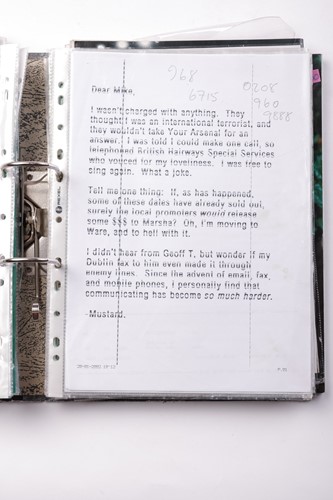 968
6715
0208
960
9888
Dear Mike,
I wasn't charged with anything. They
thought I was an international terrorist, and
they wouldn't take Your Arsenal for an
answer. I was told I could make one call, so
telephoned British Hairways Special Services
who vouced for my loveliness. I was free to
sing again. What a joke.
Tell me one thing: If, as has happened,
some of these dates have already sold out,
surely the local promoters would release
some $$$ to Marsha? Oh, I'm moving to
Ware, and to hell with it.
I didn't hear from Geoff T, but wonder if my
Dublin fax to him even made it through
enemy lines. Since the advent of email, fax,
and mobile phones, I personally find that
communicating has become so much harder.
Mustard.